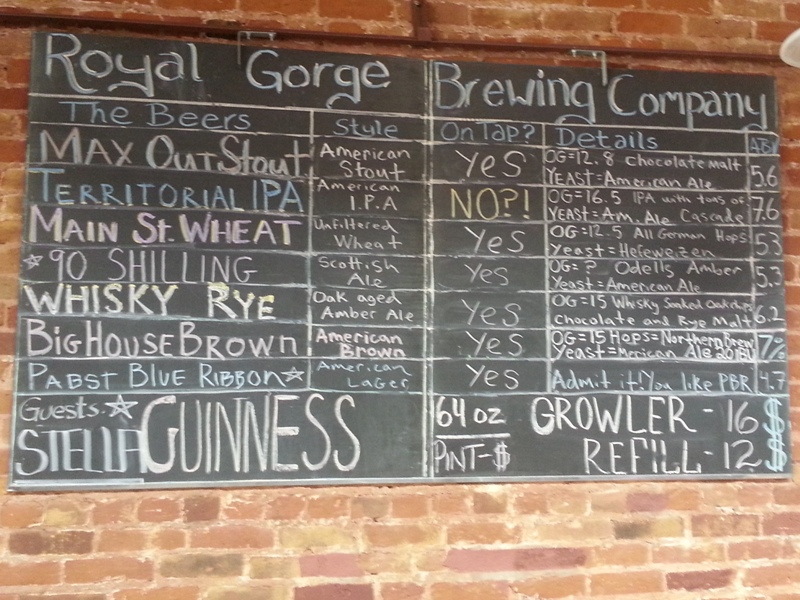 Royal Gorge Brewing Company
The Beers Style On Tap? Details ABV
MAX OUT Stout American Stout Yes OG=12.8 Chocolate Malt YEAST=American Ale 5.6
TERRITORIAL IPA American I.P.A NO?! OG=16.5 IPA with tons of YEAST=Am. Ale Cascade 7.6
MAIN St. WHEAT Unfiltered Wheat Yes OG=12.5 All German Hops Yeast=Hefeweizen 5.3
☆90 SHILLING Scottish Ale Yes OG=? Odells, Amber Yeast=American Ale 5.3
WHISKY RYE Oak aged Amber Ale Yes OG=15 Whisky Soaked Oak chips Chocolate and Rye Malt 6.2
BIG HOUSE BROWN American Brown Yes OG=15 Hops=Northern Brew Yeast=Merican Ale 20IBU 7%
PABST BLUE RIBBON☆ American Lager Yes Admit it! You like PBR 4.7
Guests-☆
STELLA GUINNESS
64 oz GROWLER - 16 $
PINT-$ REFILL - 12 $